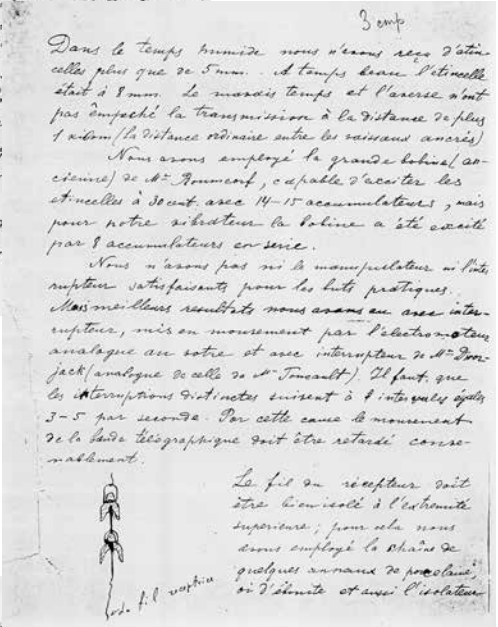 3 emp
Dans le temps humide nous n'avons reçu d'étin-
celles plus que de 5 mm. A temps beau l'étincelle
était à 8 mm. Le mauvais temps et l'averse n'ont
pas émpeché la transmission à la distance de plus
1 kilom (la distance ordinaire entre les vaissaux ancrés)
Nous avons employé la grande bobine (an-
cienne) de Mr Roumcorf, capable d'acciter les
etincelles à 30 cent. avec 14–15 accumulateurs, mais
pour notre vibrateur la bobine a été excité
par 8 accumulateurs en serie.
Nous n'avons pas ni le manupulateur ni l'inter
rupteur satisfaisants pour les buts pratiques.
meilleurs resultats nous avons eu avec inter-
rupteur, mis en mouvement par l'électromoteur
analogue au votre et avec interrupteur de Mr Dwor-
jack (analogue de celle de Mr Foucault). Il faut que
les interruptions distinctes suisent à intervales égales
3–5 par seconde. Par cette cause le mouvement
de la bande télégraphique doit être retardé conse-
nablement.
Le fil du récepteur doit
être bien isolé à l'extremité
superieure; pour cela nous
avons employé la chaîne de
quelques anneaux de porcelaine,
où d'ébonite et aussi l'isolateur
fil